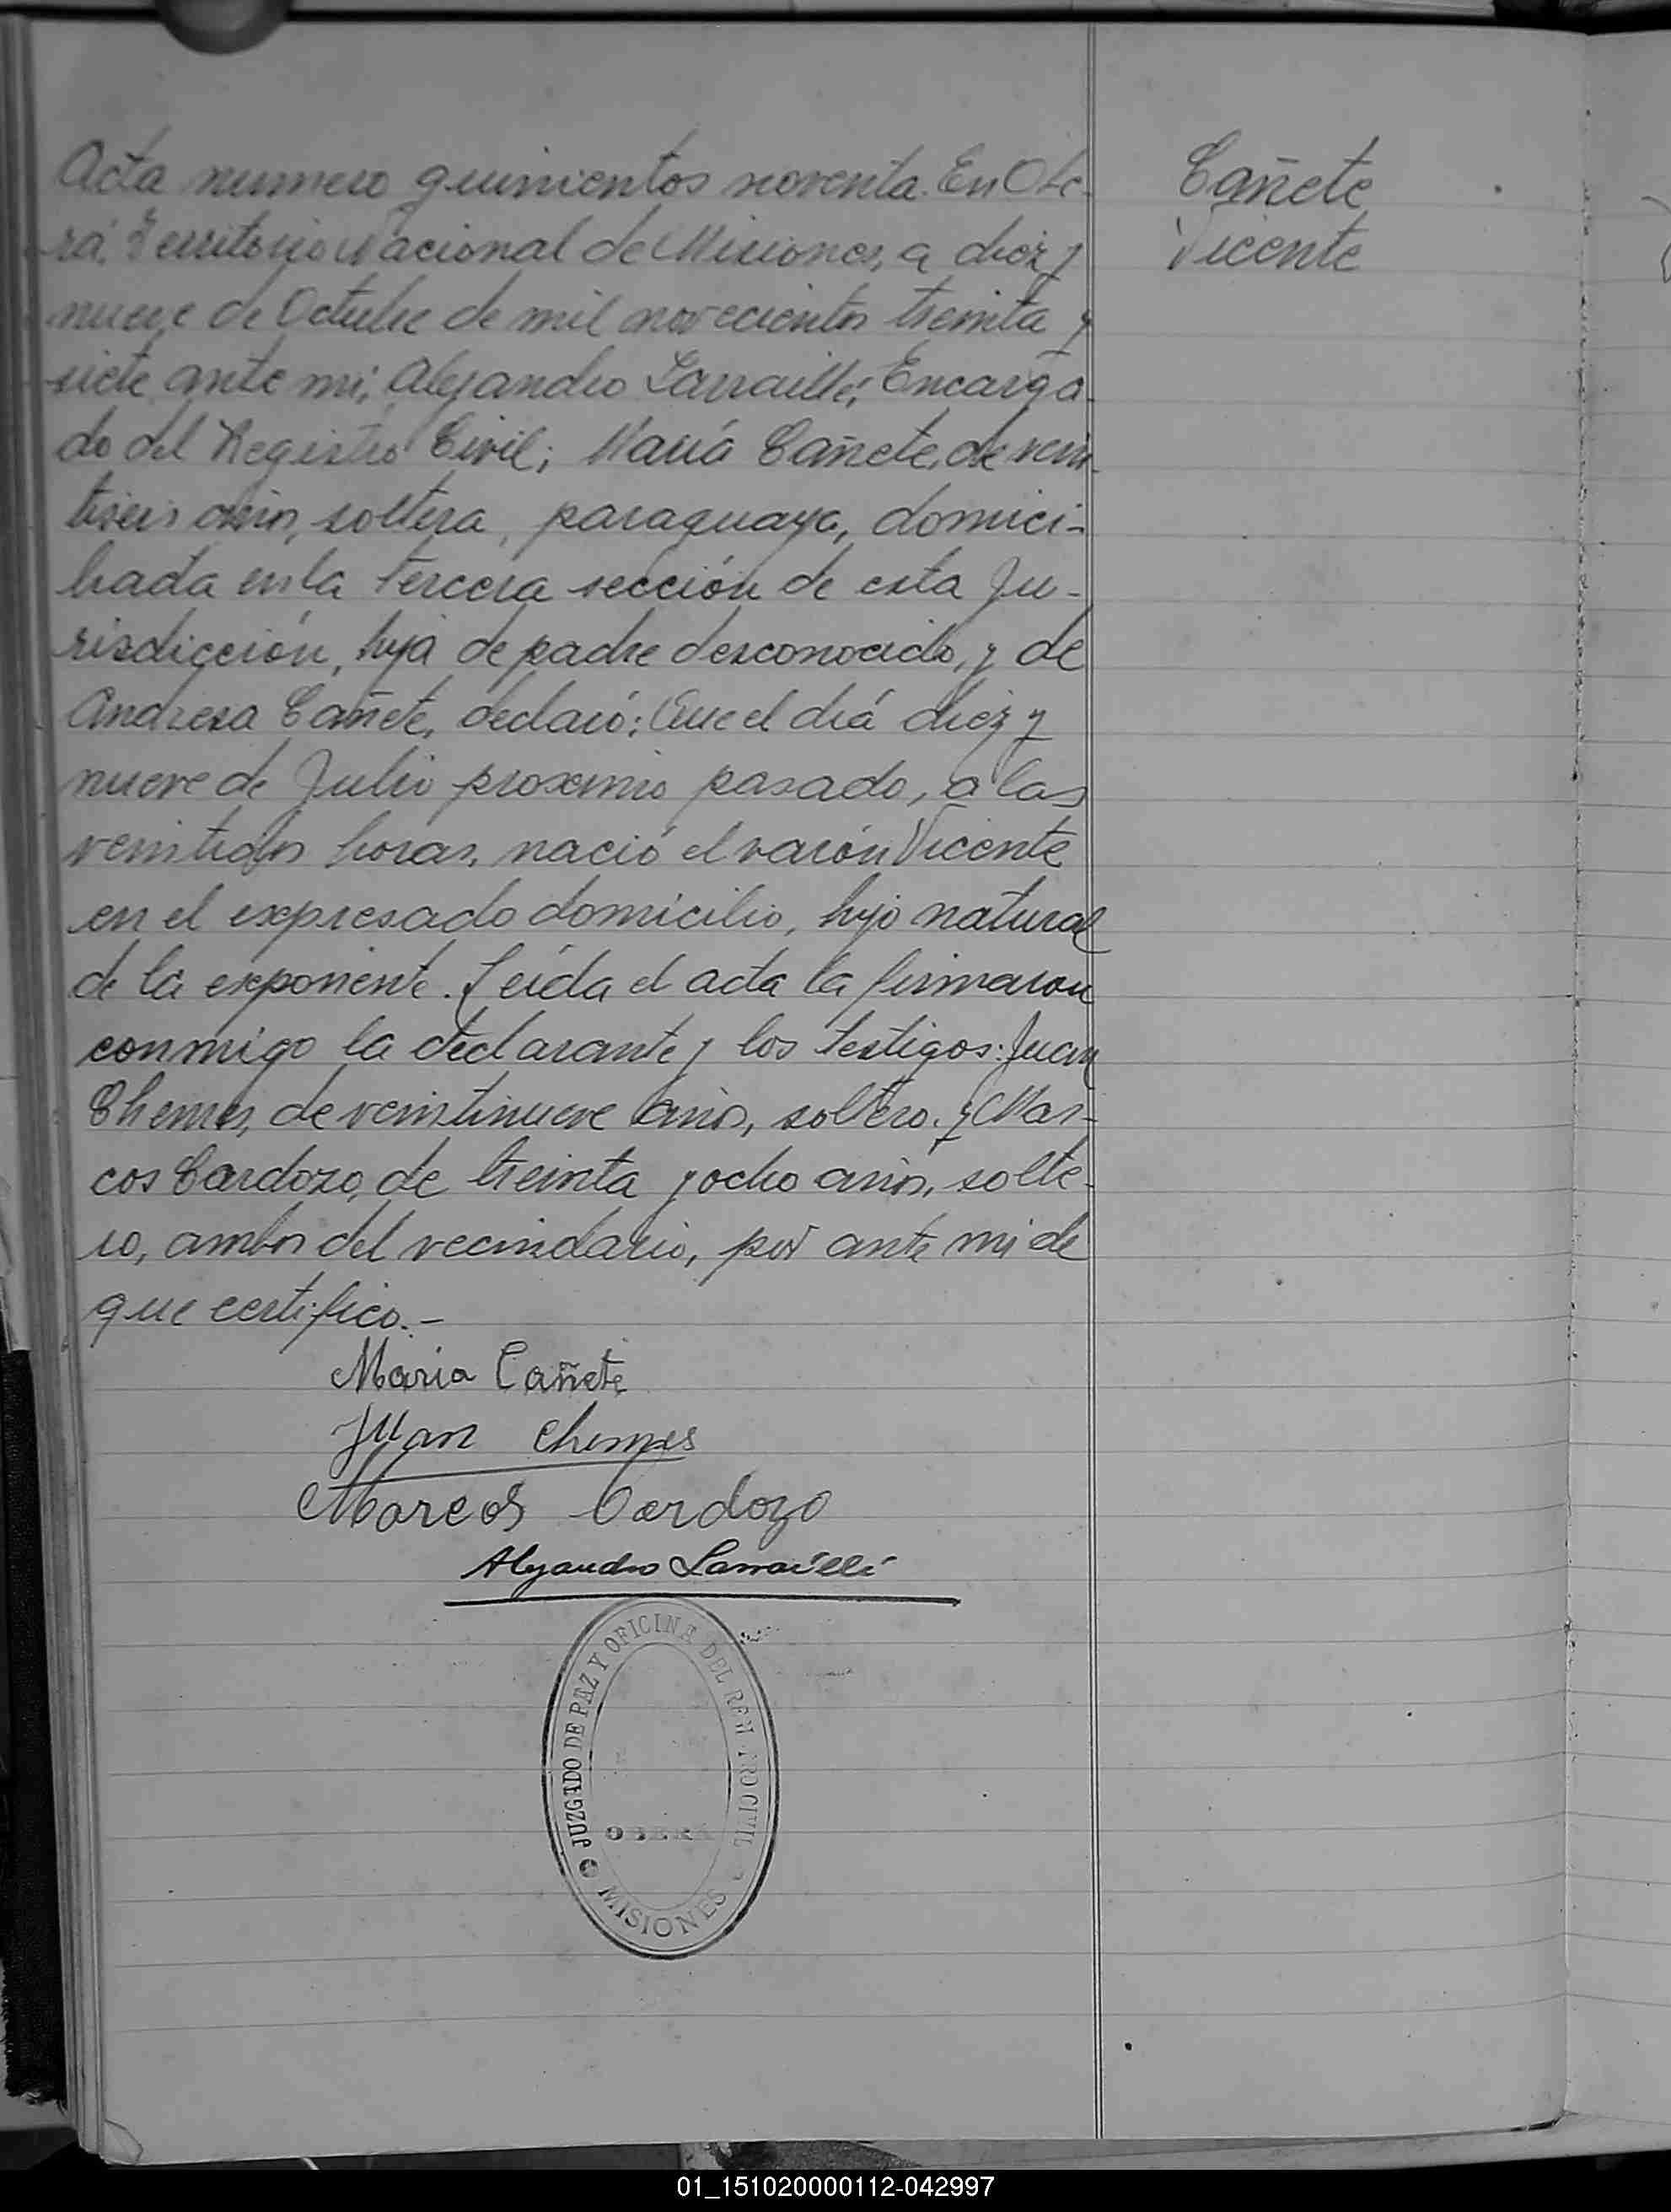 Acta numero quinientos noventa. En Obe-
rá, Territorio Nacional de Misiones, a diez y
nueve de Octubre de mil novecientos treinta y
siete, ante mi, Alejandro Larraillé, Encarga-
do del Registro Civil; María Cañete, de vein-
tiseis años, soltera, paraguaya, domici-
liada en la tercera sección de esta Ju-
risdicción, hija de padre desconocido, y de
Andresa Cañete, declaró: Que el día diez y
nueve de Julio proximo pasado, a las
veintidos horas, nació el varón Vicente
en el expresado domicilio, hijo natural
de la exponente. Leída el acta la firmaron
conmigo la declarante y los testigos: Juan
Chemes, de veintinueve años, soltero. y Mar-
cos Cardozo, de treinta y ocho años, solte-
ro, ambos del vecindario, por ante mi de
que certifico.-
Cañete
Vicente
Maria Cañete
Juan Chemes
Marcos Cardozo
Alejandro Larraillé
JUZGADO DE PAZ Y OFICINA DEL REGISTRO CIVIL
OBERÁ
MISIONES
01_151020000112-042997